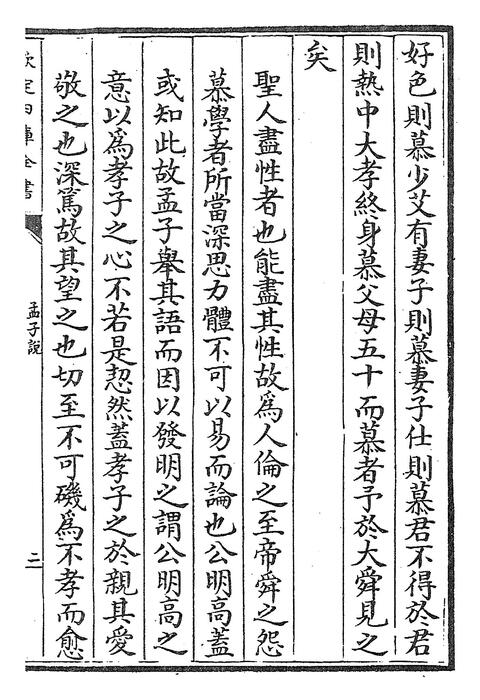 好色則慕少艾有妻子則慕妻子仕則慕君不得於君
則熱中大孝終身慕父母五十而慕者予於大舜見之
矣
聖人盡性者也能盡其性故爲人倫之至帝舜之怨
慕學者所當深思力體不可以易而論也公明高蓋
或知此故孟子舉其語而因以發明之謂公明高之
意以爲孝子之心不若是恝然蓋孝子之於親其愛
敬之也深篤故其望之也切至不可磯爲不孝而愈
欽定四庫全書
孟子說
二